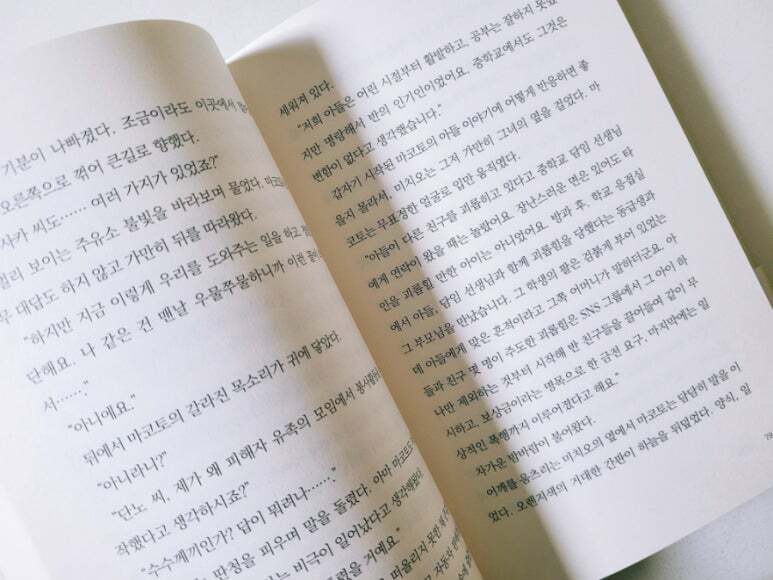 기분이 나빠졌다. 조금이라도 이곳에서
오른쪽으로 꺾어 큰길로 향했다.
사카 씨도…… 여러 가지가 있었죠?”
멀리 보이는 주유소 불빛을 바라보며 물었다. 마코토는
무 대답도 하지 않고 가만히 뒤를 따라왔다.
“하지만 지금 이렇게 우리를 도와주는 일을 하고
단해요. 나 같은 건 맨날 우물쭈물하니까 이런
서…….”
“아니에요.”
뒤에서 마코토의 갈라진 목소리가 귀에 닿았다.
“아니라니?”
“단노 씨. 제가 왜 피해자 유족의 모임에서
작했다고 생각하시죠?”
“수수께끼인가? 답이 뭐려나…….”
딴청을 피우며 말을 돌렸다. 아마 마코토
는 비극이 일어났다고 생각해왔다.
떠올리지 못한
거예요.”
세워져 있다.
“저희 아들은 어린 시절부터 활발하고, 공부는 잘하지 못했
지만 명랑해서 반의 인기인이었어요. 중학교에서도 그것은
변함이 없다고 생각했습니다.”
갑자기 시작된 마코토의 아들 이야기에 어떻게 반응하면 좋
을지 몰라서, 미치오는 그저 가만히 그녀의 옆을 걸었다. 마
코토는 무표정한 얼굴로 입만 움직였다.
“아들이 다른 친구를 괴롭히고 있다고 중학교 담임 선생님
에게 연락이 왔을 때는 놀랐어요. 장난스러운 면은 있어도 타
인을 괴롭힐 만한 아이는 아니었어요. 방과 후, 학교 응접실
에서 아들, 담임 선생님과 함께 괴롭힘을 당했다는 동급생과
그 부모님을 만났습니다. 그 학생의 팔은 검붉게 부어 있었는
데 아들에게 맞은 흔적이라고 그쪽 어머니가 말하더군요. 아
들과 친구 몇 명이 주도한 괴롭힘은 SNS 그룹에서 그 아이 하
나만 제외하는 것부터 시작해 반 친구들을 끌어들여 같이 무
시하고, 보상금이라는 명목으로 한 금전 요구, 마지막에는 일
상적인 폭행까지 이루어졌다고 해요.”
차가운 밤바람이 불어왔다.
어깨를 움츠리는 미치오의 옆에서 마코토는 담담히 말을 이
었다. 오렌지색의 거대한 간판이 하늘을 뒤덮었다. 양식, 일